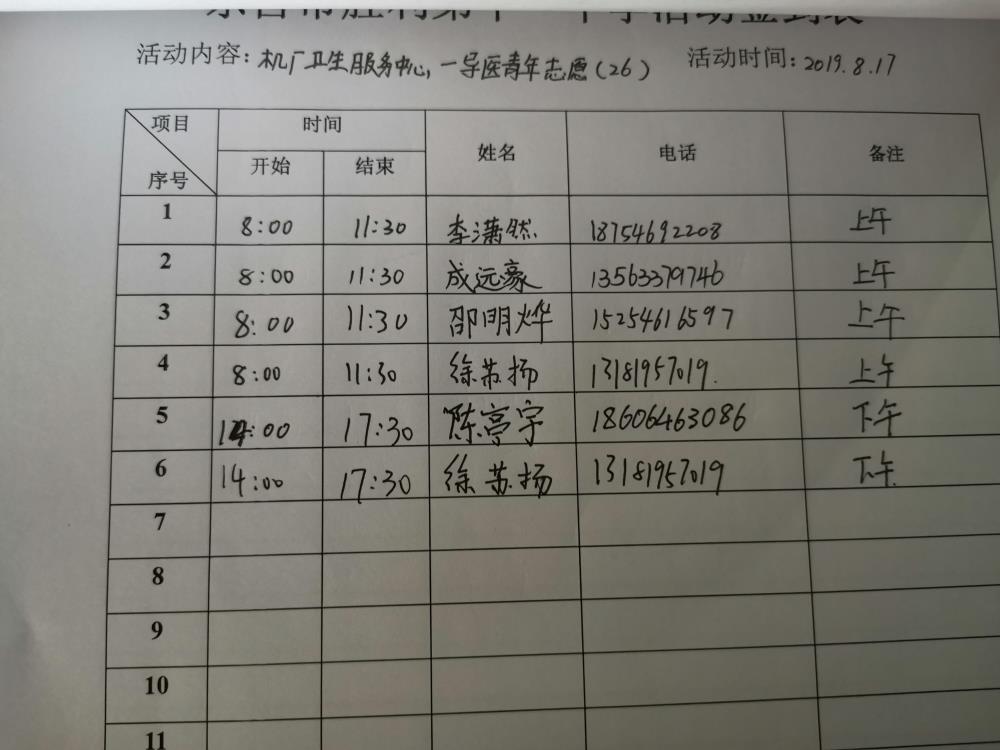 活动内容：机厂卫生服务中心，一导医青年志愿（26） 活动时间：2019.8.17
项目 时间 姓名 电话 备注
序号 开始 结束
1 8:00 11:30 李潇然 18754692208 上午
2 8:00 11:30 成远豪 13563379746 上午
3 8:00 11:30 邵明烨 15254616597 上午
4 8:00 11:30 徐苏扬 13181957019. 上午
5 14:00 17:30 陈亭宇 18606463086 下午
6 14:00 17:30 徐苏扬 13181957019 下午
7
8
9
10
11